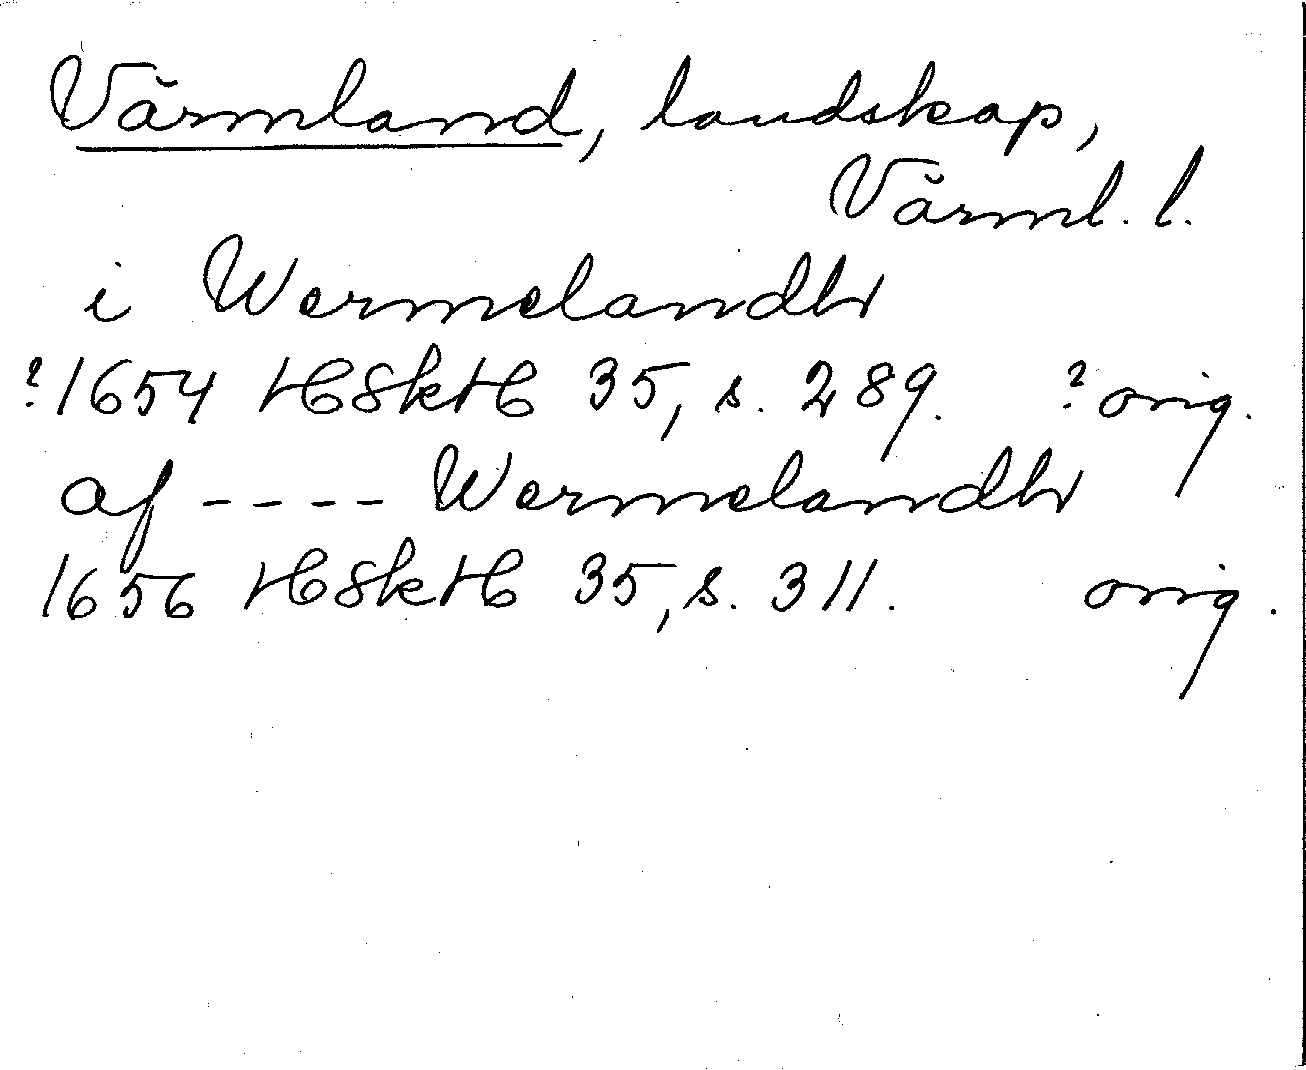 Värmland, landskap,
Värml. l.
i Wermelandh
?1654 HSkH 35, s. 289. ?orig.
af ---- Wermelandh
1656 HSkH 35, s. 311. orig.